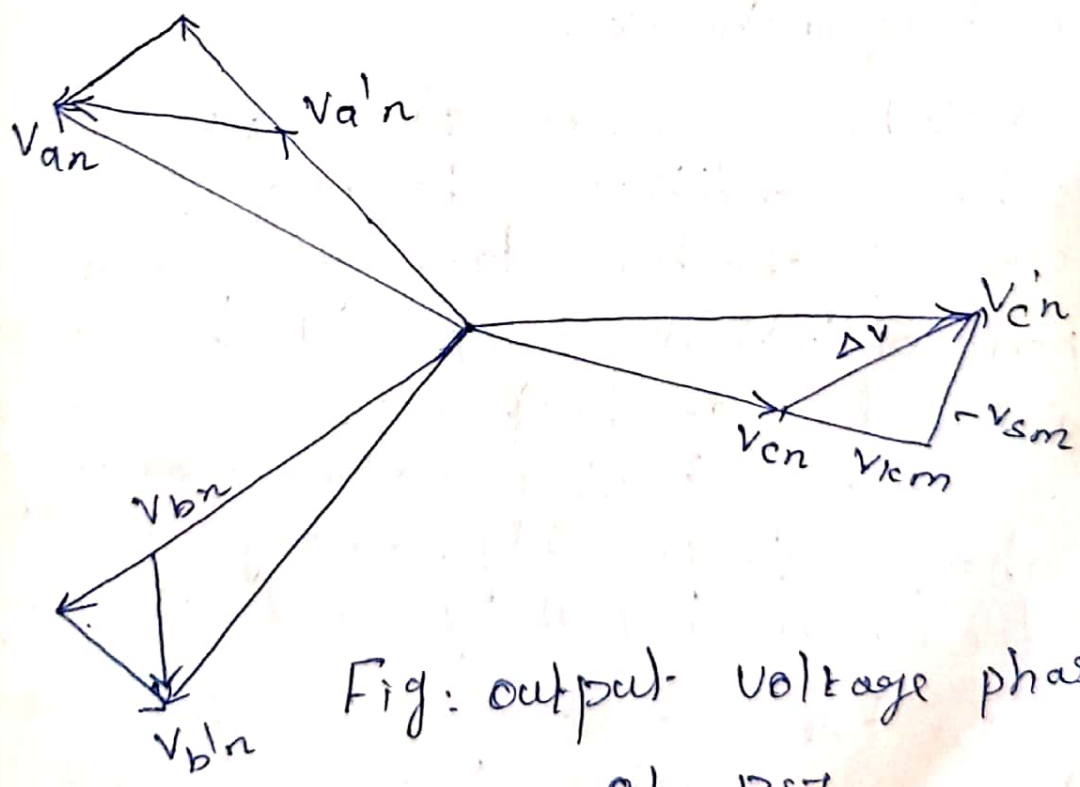 Va'n
Van
Vc'n
ΔV
-Vsm
Vcn
Vkm
Vbn
Fig: output voltage
Vb'n